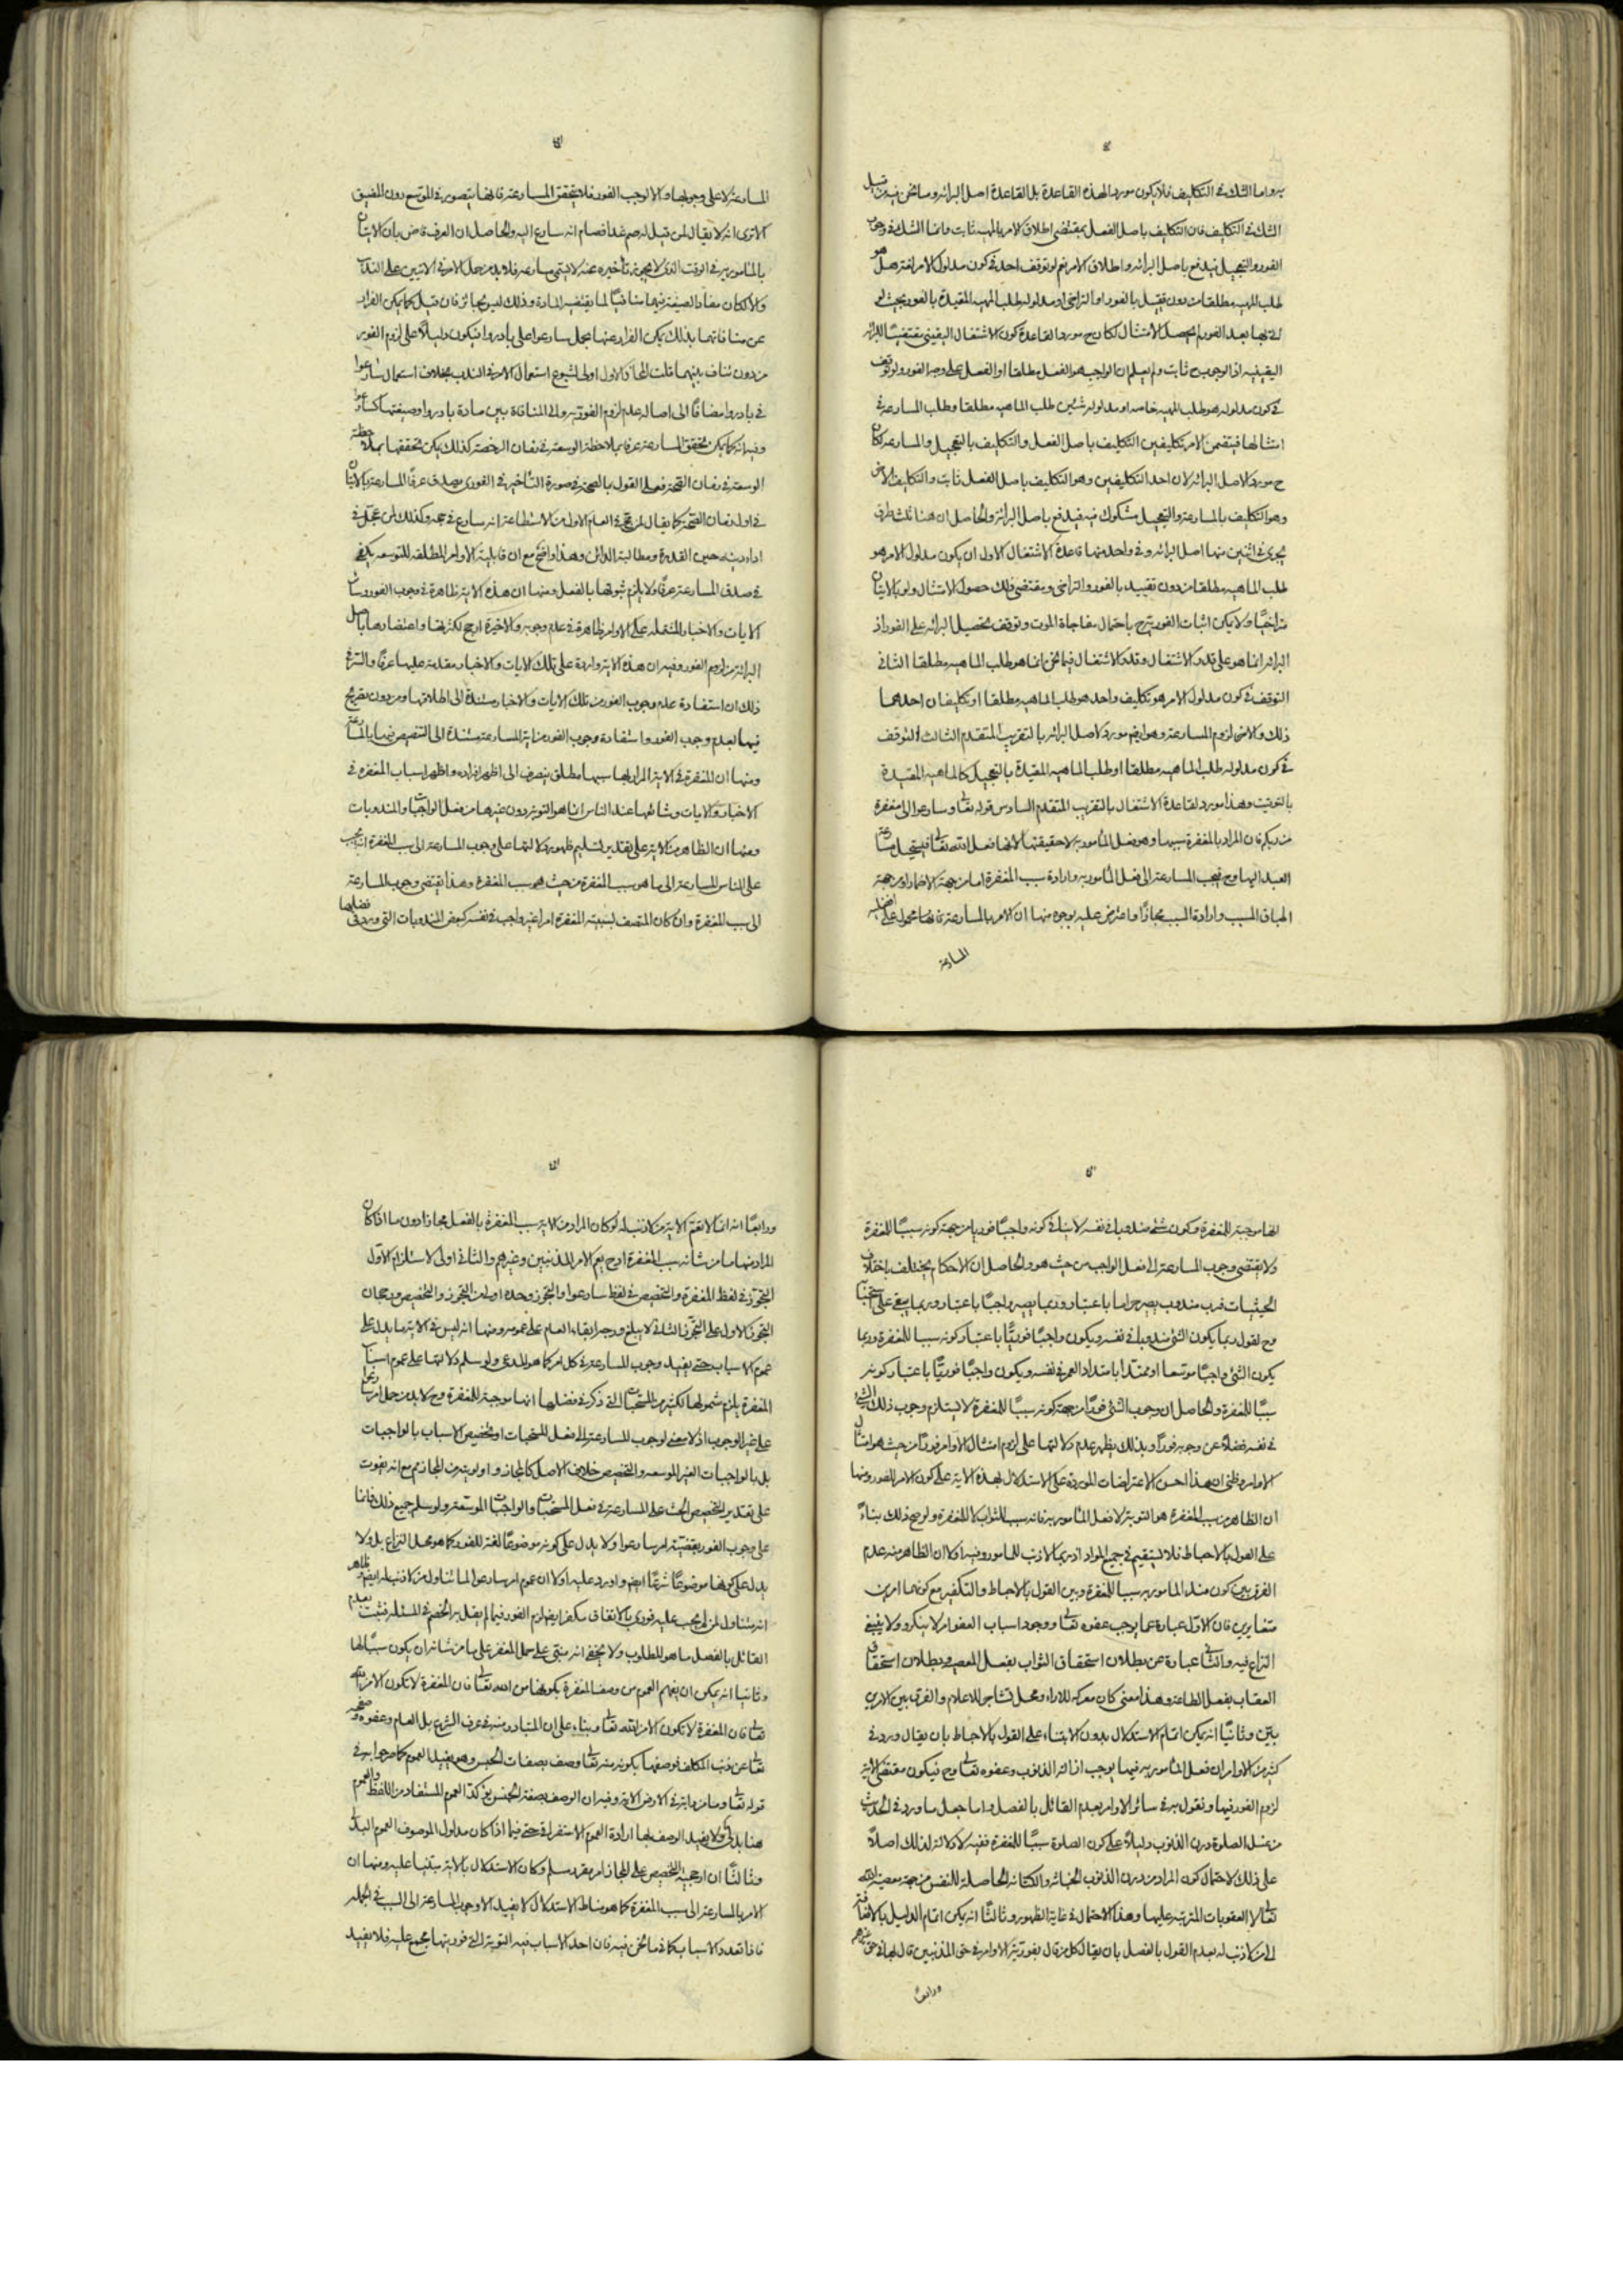 به واما الشك في التكليف فلا يكون موردا لهذه القاعدة بل القاعدة اصل البرائة وما نحن فيه من قبيل
الشك في التكليف فان التكليف باصل الفعل بمقتضى اطلاق الامر بالمهية ثابت وانما الشك في وجوب
الفور والتعجيل فيدفع باصل البرائة واطلاق الامر نعم لو توقف احد في كون مدلول الامر لغة هل هو
طلب المهية مطلقا من دون تقييد بالفور او التراخي او مدلوله طلب المهية المقيدة بالفور بحيث لو
اتى بها بعد الفور لم يحصل الامتثال لكان ح موردا لقاعدة كون الاشتغال اليقيني مقتضيا للبرائة
اليقينية اذ الوجوب ح ثابت ولم يعلم ان الواجب هو الفعل مطلقا او الفعل على وجه الفور ولو توقف
في كون مدلوله هو طلب المهية خاصة او مدلوله شيئين طلب الماهية مطلقا وطلب المسارعة في
امتثالها فيتضمن الامر تكليفين التكليف باصل الفعل والتكليف بالتعجيل والمسارعة لكان
ح موردا لاصل البرائة لان احد التكليفين وهو التكليف باصل الفعل ثابت والتكليف الاخر
وهو التكليف بالمسارعة والتعجيل مشكوك فيه فيدفع باصل البرائة والحاصل ان هنا ثلث طرق
يجري في اثنين منها اصل البرائة وفي واحد منها قاعدة الاشتغال الاول ان يكون مدلول الامر هو
طلب الماهية مطلقا من دون تقييد بالفور والتراخي ومقتضى ذلك حصول الامتثال ولو بالاتيان
متراخيا ولا يمكن اثبات الفورية ح باحتمال مفاجاة الموت وتوقف تحصيل البرائة على الفور اذ
البرائة انما هو على قدر الاشتغال وقدر الاشتغال فيما نحن انما هو طلب الماهية مطلقا الثاني
التوقف في كون مدلول الامر هو تكليف واحد هو طلب الماهية مطلقا او تكليفان احدهما
ذلك والاخر لزوم المسارعة وهو ايضا مورد لاصل البرائة بالتقريب المتقدم الثالث التوقف
في كون مدلوله طلب الماهية مطلقا او طلب الماهية المقيدة بالتعجيل كالماهية المقيدة
بالتوقيت وهذا مورد لقاعدة الاشتغال بالتقريب المتقدم السادس قوله تعالى وسارعوا الى مغفرة
من ربكم فان المراد بالمغفرة سببها وهو فعل المأمور به لا حقيقتها لانها فعل الله تعالى فيستحيل مسارعة
العبد اليها وح فيجب المسارعة الى فعل المأمور به وارادة سبب المغفرة اما من جهة الاضمار او من جهة
اطلاق المسبب وارادة السبب مجازا واعترض عليه بوجوه منها ان الامر بالمسارعة فانها محمول على افضلية
المسارعة
المسارعة لا على وجوبها والا لوجب الفور فلا يتحقق المسارعة فانها يتصور في الموسع دون المضيق
الا ترى انه لا يقال لمن قيل له صم غدا فصام انه سارع اليه والحاصل ان العرف قاض بان الاتيان
بالمأمور به في الوقت الذي لا يجوز تأخيره عنه لا يسمى مسارعة فلا بد من حمل الامر في الايتين على الندب
والا لكان مفاد الصيغة فيهما منافيا لما يقتضيه المادة وذلك ليس بجائز فان قيل كما يمكن الفرار
عن منافاتهما بذلك يمكن الفرار عنها بحمل سارعوا على بادروا فيكون دليلا على لزوم الفور
من دون تناف بينهما قلت الاول اولى لشيوع استعمال الامر في الندب بخلاف استعمال سارعوا
في بادروا مضافا الى اصالة عدم لزوم الفورية والى المنافاة بين مادة بادروا وصيغتها كسارعوا
وفيه انه كما يمكن تحقق المسارعة عرفا بملاحظة الوسعة في زمان الرخصة كذلك يمكن تحققها بملاحظة
الوسعة في زمان الصحة فعلى القول بالصحة في صورة التأخير في الفوري يصدق عرفا المسارعة بالاتيان
في اول زمان الصحة كما يقال لمن حج في العام الاول من الاستطاعة انه سارع في حجه وكذلك لمن عجل في
اداء دينه حين القدرة ومطالبة الدائن وهذا واضح مع ان قابلية الاوامر المطلقة للتوسعة يكفي
في صدق المسارعة عرفا ولا يلزم ثبوتها بالفعل ومنها ان هذه الاية ظاهرة في وجوب الفور وسائر
الايات والاخبار المشتملة على الاوامر ظاهرة في عدم وجوبه والاخيرة ارجح لكثرتها واعتضادها باصل
البرائة من لزوم الفور وفيه ان هذه الاية واردة على تلك الايات والاخبار مقدمة عليها عرفا والسر في
ذلك ان استفادة عدم وجوب الفور من تلك الايات والاخبار مستندة الى اطلاقها ومن دون تصريح
فيها بعدم وجوب الفور واستفادة وجوب الفور من اية المسارعة مستندة الى التنصيص فيها بالمسارعة
ومنها ان المغفرة في الاية المراد بها سببها مطلق ينصرف الى اظهر افراده واظهر اسباب المغفرة في
الاخبار والايات وشائعها عند الناس انما هو التوبة دون غيرها من فعل الواجبات والمندوبات
ومنها ان الظاهر من الاية على تقدير تسليم ظهورها دلالتها على وجوب المسارعة الى سبب المغفرة انه يجب
على الناس المسارعة الى ما هو سبب المغفرة من حيث هو سبب المغفرة وهذا يقتضي وجوب المسارعة
الى سبب المغفرة وان كان المتصف بسببية المغفرة امرا غير واجب في نفسه كبعض المندوبات التي ورد في فضلها
انها موجبة للمغفرة وكون شيء مندوبا في نفسه لا ينافي كونه واجبا فوريا من جهة كونه سببا للمغفرة
ولا يقتضي وجوب المسارعة الى فعل الواجب من حيث هو والحاصل ان الاحكام يختلف باختلاف
الحيثيات فرب مندوب يصير حراما باعتبار وربما يصير واجبا باعتبار وربما يبقى على استحبابه
وح نقول ربما يكون الشيء مندوبا في نفسه ويكون واجبا فوريا باعتبار كونه سببا للمغفرة وربما
يكون الشيء واجبا موسعا او ممتدا بامتداد العمر في نفسه ويكون واجبا فوريا باعتبار كونه
سببا للمغفرة والحاصل ان وجوب الشيء فورا من جهة كونه سببا للمغفرة لا يستلزم وجوب ذلك الشيء
في نفسه فضلا عن وجوبه فورا وبذلك يظهر عدم دلالتها على لزوم امتثال الاوامر فورا من حيث هو امتثال
الاوامر وظني ان هذا احسن الاعتراضات الموردة على الاستدلال بهذه الاية على كون الامر للفور ومنها
ان الظاهر من سبب المغفرة هو التوبة لا فعل المأمور به فانه سبب للثواب لا للمغفرة ولو صح ذلك بناء
على القول بالاحباط فلا يستقيم في جميع الموارد اذ ربما لا ذنب للمأمور وفيه اولا ان الظاهر منه عدم
الفرق بين كون فعل المأمور به سببا للمغفرة وبين القول بالاحباط والتكفير مع كونهما امرين
متغايرين فان الاول عبارة عما يوجب عفوه تعالى ووجود اسباب العفو امر لا ينكر ولا ينبغي
النزاع فيه والثاني عبارة عن بطلان استحقاق الثواب بفعل المعصية وبطلان استحقاق
العقاب بفعل الطاعة وهذا معنى كان معركة للاراء ومحل تشاجر للاعلام والفرق بين الامرين
بين وثانيا انه يمكن اتمام الاستدلال بدون الابتناء على القول بالاحباط بان يقال ورد في
كثير من الاوامر ان فعل المأمور به فيها يوجب ازالة الذنوب وعفوه تعالى وح فيكون مقتضى الاية
لزوم الفور فيها ونقول به في سائر الاوامر بعدم القائل بالفصل واما جعل ما ورد في الحديث
من غسل الصلوة درن الذنوب دليلا على كون الصلوة سببا للمغفرة ففيه لا دلالة لذلك اصلا
على ذلك لاحتمال كون المراد من درن الذنوب الخباثة والكثافة الحاصلة للنفس من جهة معصية الله
تعالى لا العقوبات المترتبة عليها وهذا الاحتمال في غاية الظهور وثالثا انه يمكن اتمام الدليل بالاضافة
الى من لا ذنب له بعدم القول بالفصل بان يقال كل من قال بفورية الاوامر في حق المذنبين قال بها في حق غيرهم
ورابعا
ورابعا انه انما لا تعم الاية من لا ذنب له لو كان المراد من الاية سبب المغفرة بالفعل مجازا دون ما اذا كان
المراد منها ما من شأنه سبب المغفرة اذ ح يعم الامر المذنبين وغيرهم والثاني اولى لاستلزام الاول
التجوز في لفظ المغفرة والتخصيص في لفظ سارعوا والتجوز وحده اولى من التجوز والتخصيص ورجحان
التجوز الاول على التجوز الثاني لا يبلغ درجة ابقاء العام على عمومه ومنها انه ليس في الاية ما يدل على
عموم الاسباب حتى يفيد وجوب المسارعة في كل امر كما هو المدعى ولو سلم دلالتها على عموم اسباب
المغفرة يلزم شمولها لكثير من المستحبات التي ذكر في فضلها انها موجبة للمغفرة وح لا بد من حمل امر سارعوا
على غير الوجوب اذ لا معنى لوجوب المسارعة الى فعل المستحبات او تخصيص الاسباب بالواجبات
بل بالواجبات الغير الموسعة والتخصيص خلاف الاصل كالمجاز واولويته من المجاز مم مع انه يفوت
على تقدير التخصيص الحث على المسارعة في فعل المستحبات والواجبات الموسعة ولو سلم جميع ذلك فانما
على وجوب الفور بقضية امر سارعوا ولا يدل على كونه موضوعا لغة للفور كما هو محل النزاع بل ولا
يدل على كونها موضوعا شرعا ايضا واورد عليه اولا ان عموم امر سارعوا لما شاول من لا ذنب له ايضا وظاهر
انه متناول لمن لم يجب عليه فوري بالاتفاق مكفر ايضا لزم الفور فيما لم يقل به الخصم في المسئلة فثبت بعدم
القائل بالفصل ما هو المطلوب ولا يخفى انه مبتني على حمل المغفرة على ما من شأنه ان يكون سببا لها
وثانيا انه يمكن ان يفهم العموم من وصف المغفرة بكونها من الله تعالى فان المغفرة لا تكون الا من الله
تعالى فان المغفرة لا تكون الا من الله تعالى وبناء على ان المتبادر منه في عرف الشرع بل العام وعفوه وصفحه
تعالى عن ذنب المكلف فوصفها بكونه منه تعالى وصف بصفات الجنس وهو يفيد العموم كما صرحوا به في
قوله تعالى وما من دابة في الارض الاية وفيه ان الوصف بصفة الجنس يؤكد العموم المستفاد من اللفظ والعموم
هنا بدلي ولا يفيد الوصف بها ارادة العموم الاستغراقي حتى فيما اذا كان مدلول الموصوف العموم البدلي
وثالثا ان ارجحية التخصيص على المجاز امر مقرر مسلم وكان الاستدلال بالاية مبتنيا عليه ومنها ان
الامر بالمسارعة الى سبب المغفرة كما هو مناط الاستدلال لا يفيد الا وجوب المسارعة الى السبب في الجملة
فاذا تعدد الاسباب كما فيما نحن فيه فان احد الاسباب فيه التوبة التي فوريتها مجمع عليه فلا يفيد